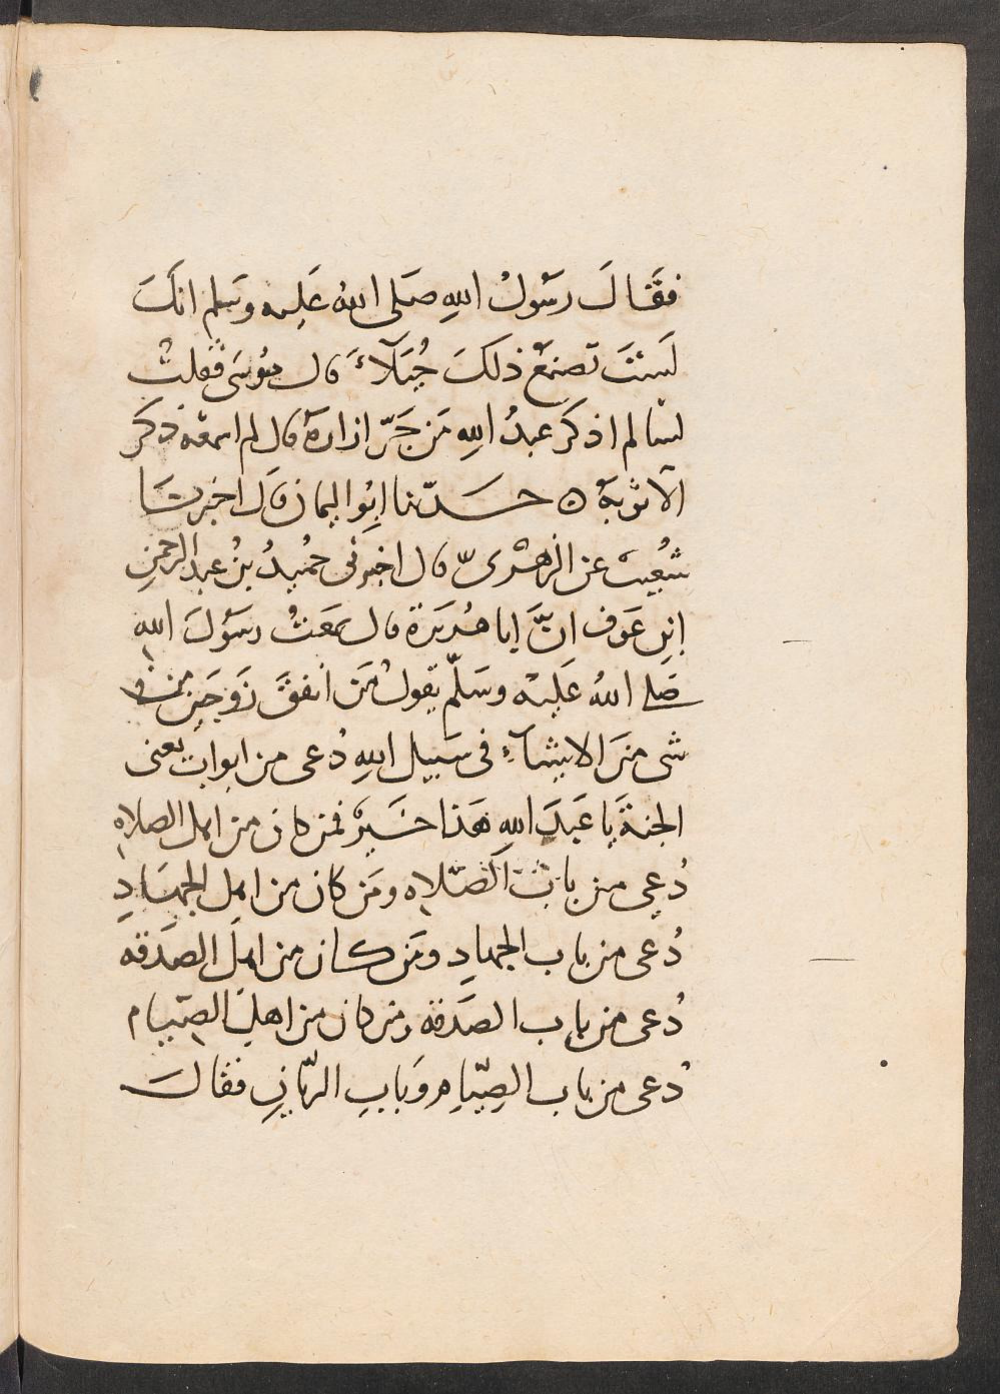 فقَالَ رسَوُلُ اللهِ صَلى اللهُ عَليه وسَلم انكَ
لَستَ تصنَعُ ذلكَ خُيَلآءَ قال موُسَى فقلتُ
لسالم اذكرَ عبدُ اللهِ مَن جَرّ ازارهُ قال لم اسمعه ذكر
الا ثوبهُ ۞ حَدّثنا ابوُ اليمان قال اخبرنَا
شُعيبٌ عن الزهْرىّ قال اخبرنى حُميدُ بنُ عبد الرحمنِ
ابنِ عَوف انَّ ابا هُرَيَرة قال سمعَتُ رسَوُلَ اللهِ
صَلى اللهُ عَليْه وسَلّم يقولُ مَن انفقَ زَوجَينِ من
شى منَ الاشيآءِ فى سَبيل اللهِ دُعى من ابواب يعنى
الجنةَ يَا عَبدَ اللهِ هَذا خَيرٌ فمن كان من اهل الصلاهِ
دُعِى من باب الصَّلاهِ ومَن كان من اهل الجهَادِ
دُعى من باب الجهادِ ومَن كان من اهل الصَدقه
دُعى من باب الصَدقه ومن كان من اهلِ الصِّيَام
دُعى من باب الصِّيَامِ وَبابِ الرّيّانِ فقالَ